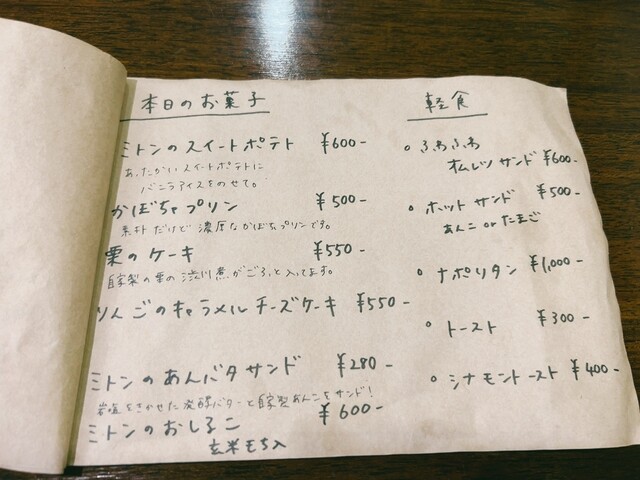 本日のお菓子
ミトンのスイートポテト ¥600-
あたたかいスイートポテトに
バニラアイスをのせて。
かぼちゃプリン ¥500-
素朴だけど濃厚なかぼちゃプリンです。
栗のケーキ ¥550-
自家製の栗の渋川煮がごろっと入ってます。
りんごのキャラメルチーズケーキ ¥550-
ミトンのあんバタサンド ¥280-
岩塩をきかせた発酵バターと自家製あんこをサンド!
ミトンのおしるこ ¥600-
玄米もち入
軽食
○ ふわふわ
オムレツサンド ¥600-
○ ホットサンド ¥500-
あんこ or たまご
○ ナポリタン ¥1,000-
○ トースト ¥300-
○ シナモントースト ¥400-